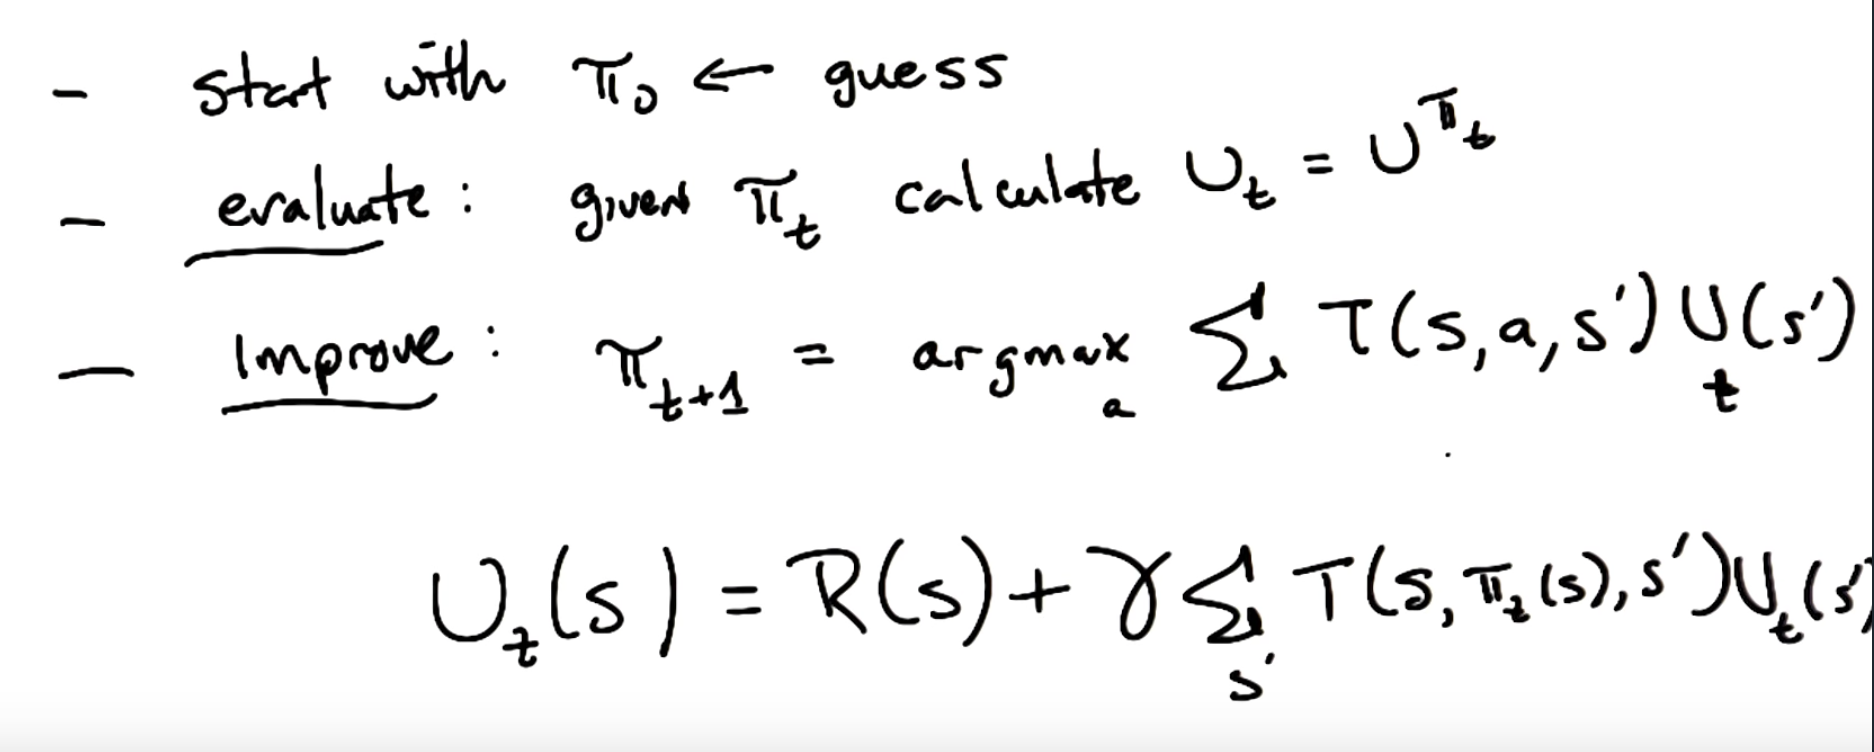 - start with π₀ ← guess
- evaluate: given π_t calculate U_t = U^π_t
- Improve: π_t+1 = argmax_a Σ T(s,a,s') U_t(s')
U_t(s) = R(s) + γ Σ_s' T(s, π_t(s), s') U_t(s'